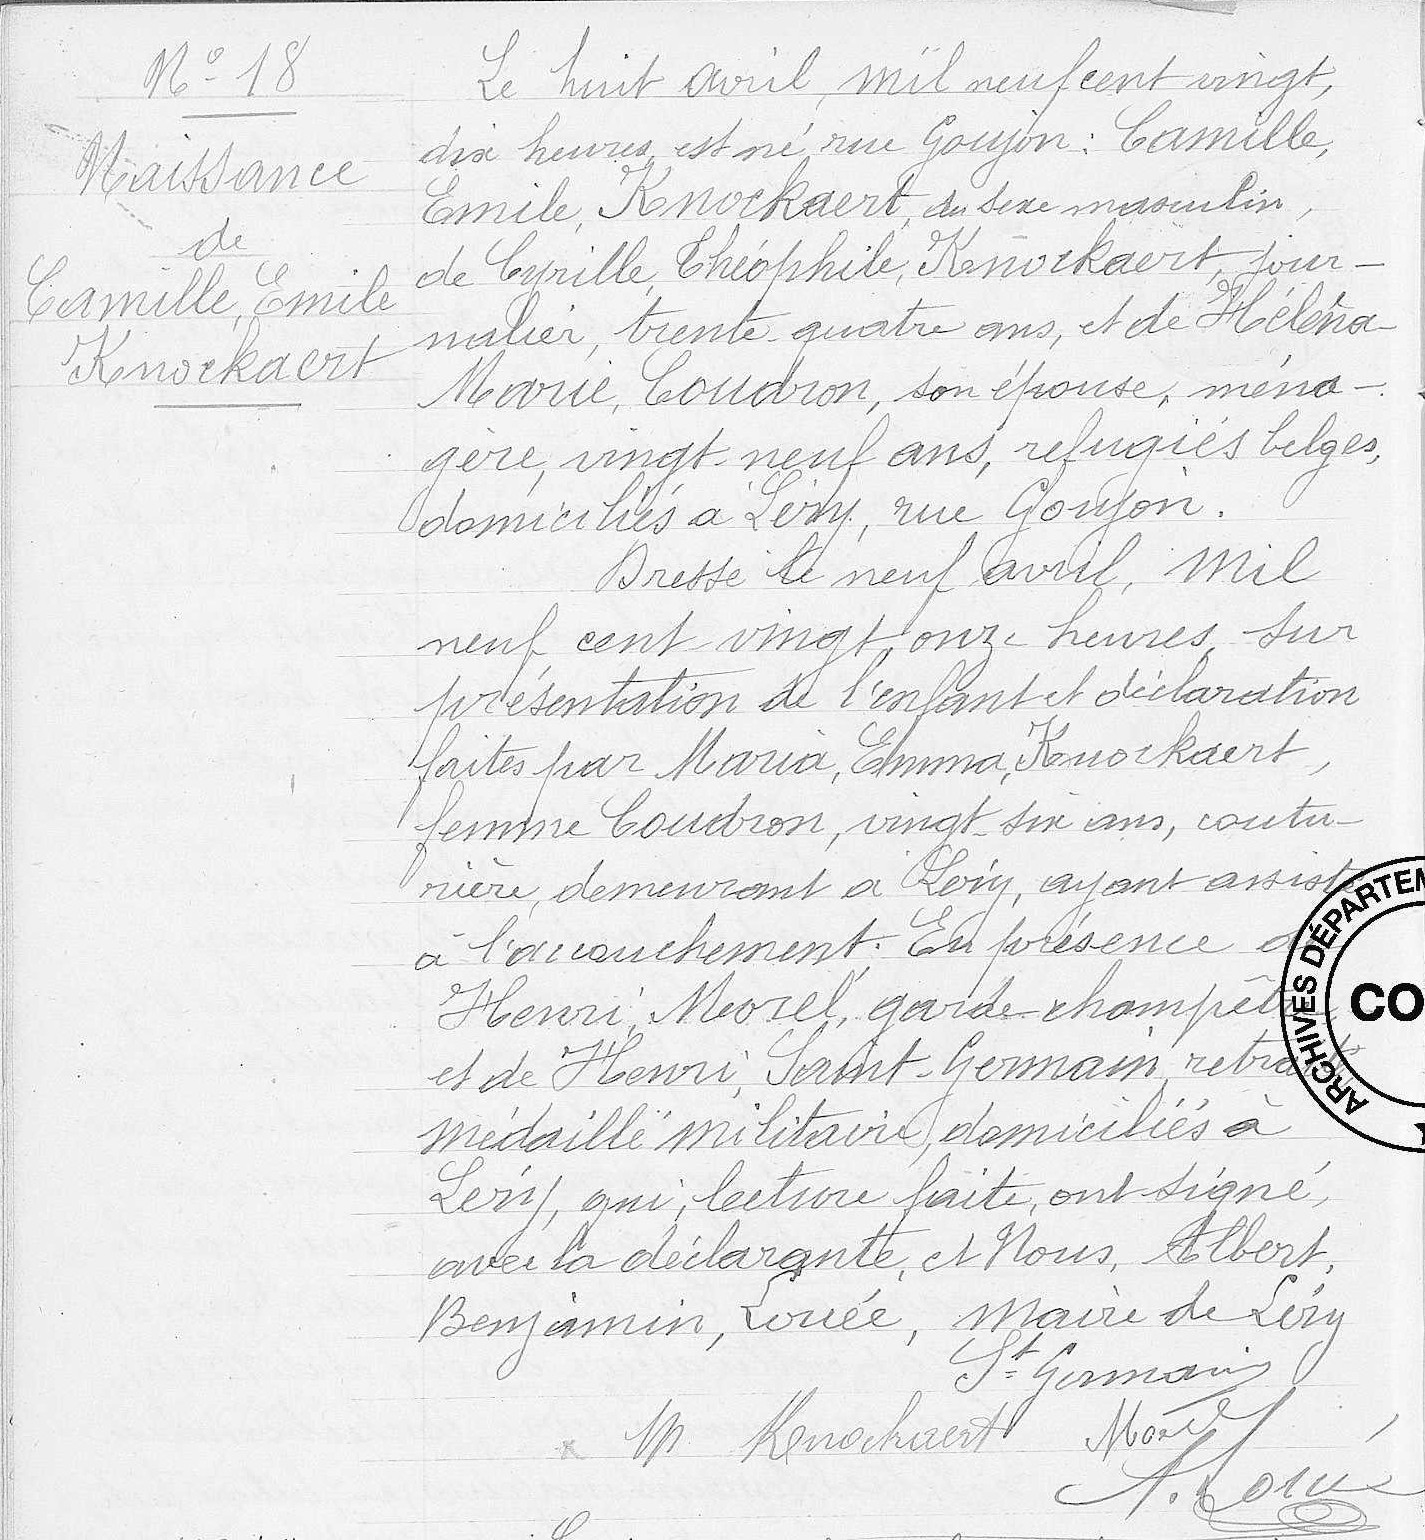 N° 18
Naissance
de
Camille, Emile
Knockaert
Le huit avril, mil neuf cent vingt,
dix heures, est né, rue Goujon : Camille,
Emile, Knockaert, du sexe masculin,
de Cyrille, Théophile, Knockaert, jour-
nalier, trente-quatre ans, et de Héléna
Marie, Coudron, son épouse, ména-
gère, vingt-neuf ans, refugiés belges,
domiciliés à Léry, rue Goujon.
Dressé le neuf avril, mil
neuf cent vingt, onze heures, sur
présentation de l'enfant et déclaration
faites par Maria, Emma, Knockaert,
femme Coudron, vingt-six ans, coutu-
rière, demeurant à Léry, ayant assisté
à l'accouchement. En présence
Henri, Morel, garde-champêtre
et de Henri, Saint-Germain, retraité
médaillé militaire, domiciliés à
Léry, qui, lecture faite, ont signé,
avec la déclarante, et Nous, Albert,
Benjamin, Louée, Maire de Léry
St Germain
M Knockaert Morel
A. Loué
ARCHIVES DÉPARTEM
CO